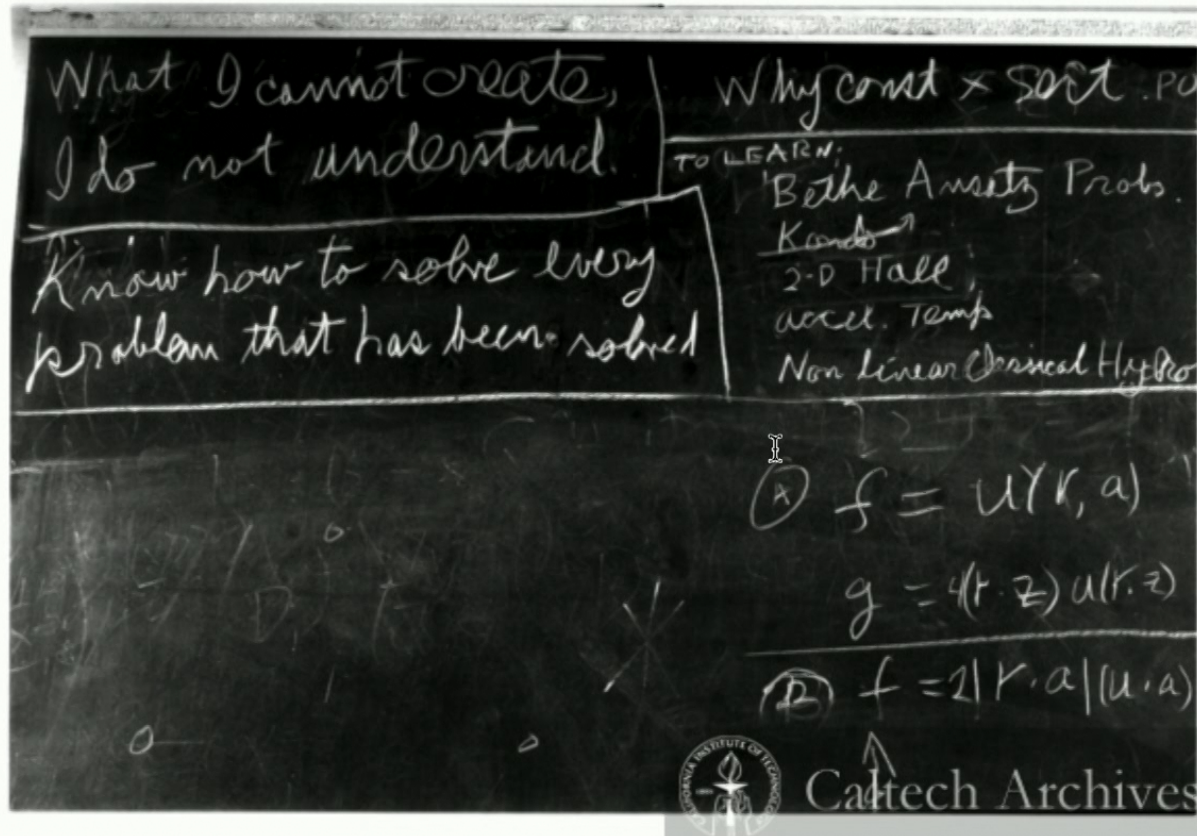 What I cannot create,
I do not understand.
Know how to solve every
problem that has been solved
Why const × sort . PO
TO LEARN:
Bethe Ansatz Probs.
Kondo
2-D Hall
accel. Temp
Non Linear Classical Hydro
(A) f = u(r, a)
g = 4(r · z) u(r. z)
(B) f = 2|r · a|(u · a)
CALIFORNIA INSTITUTE OF TECHNOLOGY
Caltech Archives